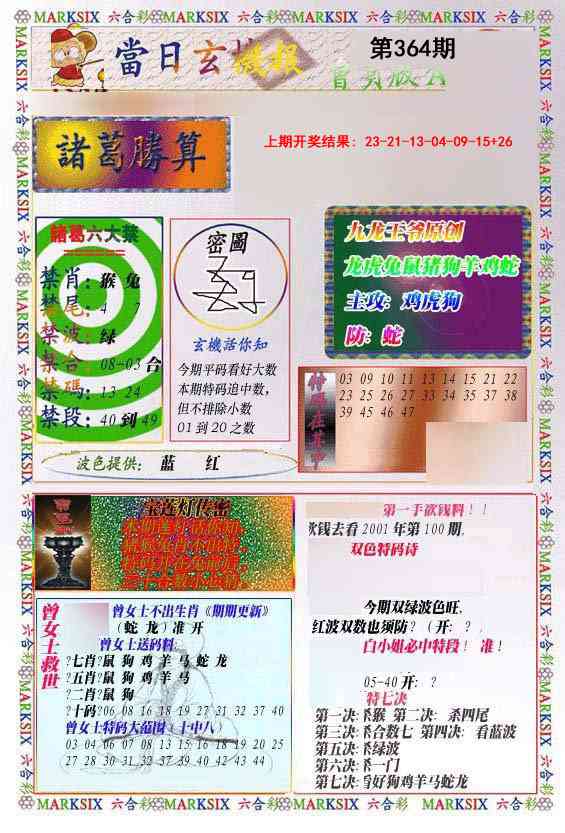 MARKSIX 六合彩 MARKSIX 六合彩 MARKSIX 六合彩 MARKSIX 六合彩
當日玄機報
第364期
諸葛勝算
上期开奖结果: 23-21-13-04-09-15+26
諸葛六大禁
禁肖: 猴 兔
禁尾: 4 7
禁波: 绿
禁合: 08-03 合
禁碼: 13 24
禁段: 40 到 49
密圖
玄機話你知
今期平码看好大数
本期特码追中数,
但不排除小数
01 到 20 之数
九龙王爷原创
龙虎兔鼠猪狗羊鸡蛇
主攻: 鸡虎狗
防: 蛇
特碼在其中
03 09 10 11 13 14 15 21 22
23 25 26 27 33 34 35 37 38
39 45 46 47
波色提供: 蓝 红
宝莲灯传密
曾女士救世
曾女士不出生肖《期期更新》
(蛇 龙) 准 开
曾女士送码料:
?七肖?鼠 狗 鸡 羊 马 蛇 龙
?五肖?鼠 狗 鸡 羊 马
?二肖?鼠 狗
?十码?06 08 16 18 19 27 31 32 37 40
曾女士特码大范围 (十中八)
03 04 06 07 08 13 15 16 18 19 20 25
27 28 30 31 32 37 39 40 42 43 44
第一手欲钱料!!
欲钱去看 2001 年第 100 期.
双色特码诗
今期双绿波色旺.
红波双数也须防? (开: ? .
白小姐必中特段! 准!
05-40 开: ?
特七决
第一决: 杀猴 第二决: 杀四尾
第三决: 杀合数七 第四决: 看蓝波
第五决: 杀绿波
第六决: 杀一门
第七决: 看好狗鸡羊马蛇龙
MARKSIX 六合彩 MARKSIX 六合彩 MARKSIX 六合彩 MARKSIX 六合彩